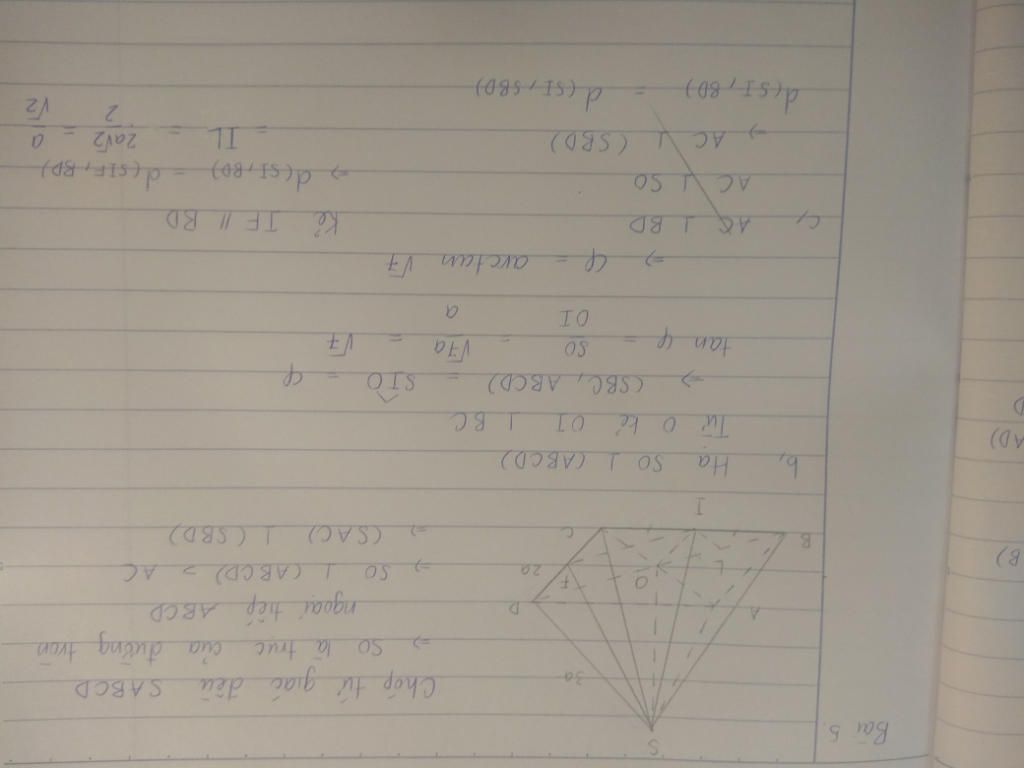 Bài 5.
S
3a
A
D
O
F
2a
L
B
I
C
Chóp tứ giác đều SABCD
⇒ SO là trục của đường tròn
ngoại tiếp ABCD
⇒ SO ⊥ (ABCD) > AC
⇒ (SAC) ⊥ (SBD)
b, Hạ SO ⊥ (ABCD)
Từ O kẻ OI ⊥ BC
⇒ (SBC, ABCD) = SIO = φ
tan φ = SO/OI = √7a/a = √7
⇒ φ = arctan √7
c, AC ⊥ BD
AC ⊥ SO
⇒ AC ⊥ (SBD)
d(SI, BD) = d(SI, SBD)
Kẻ IF // BD
⇒ d(SI, BD) = d(SIF, BD)
= IL = 2a√2/2 = a/√2
B)
AD)
D